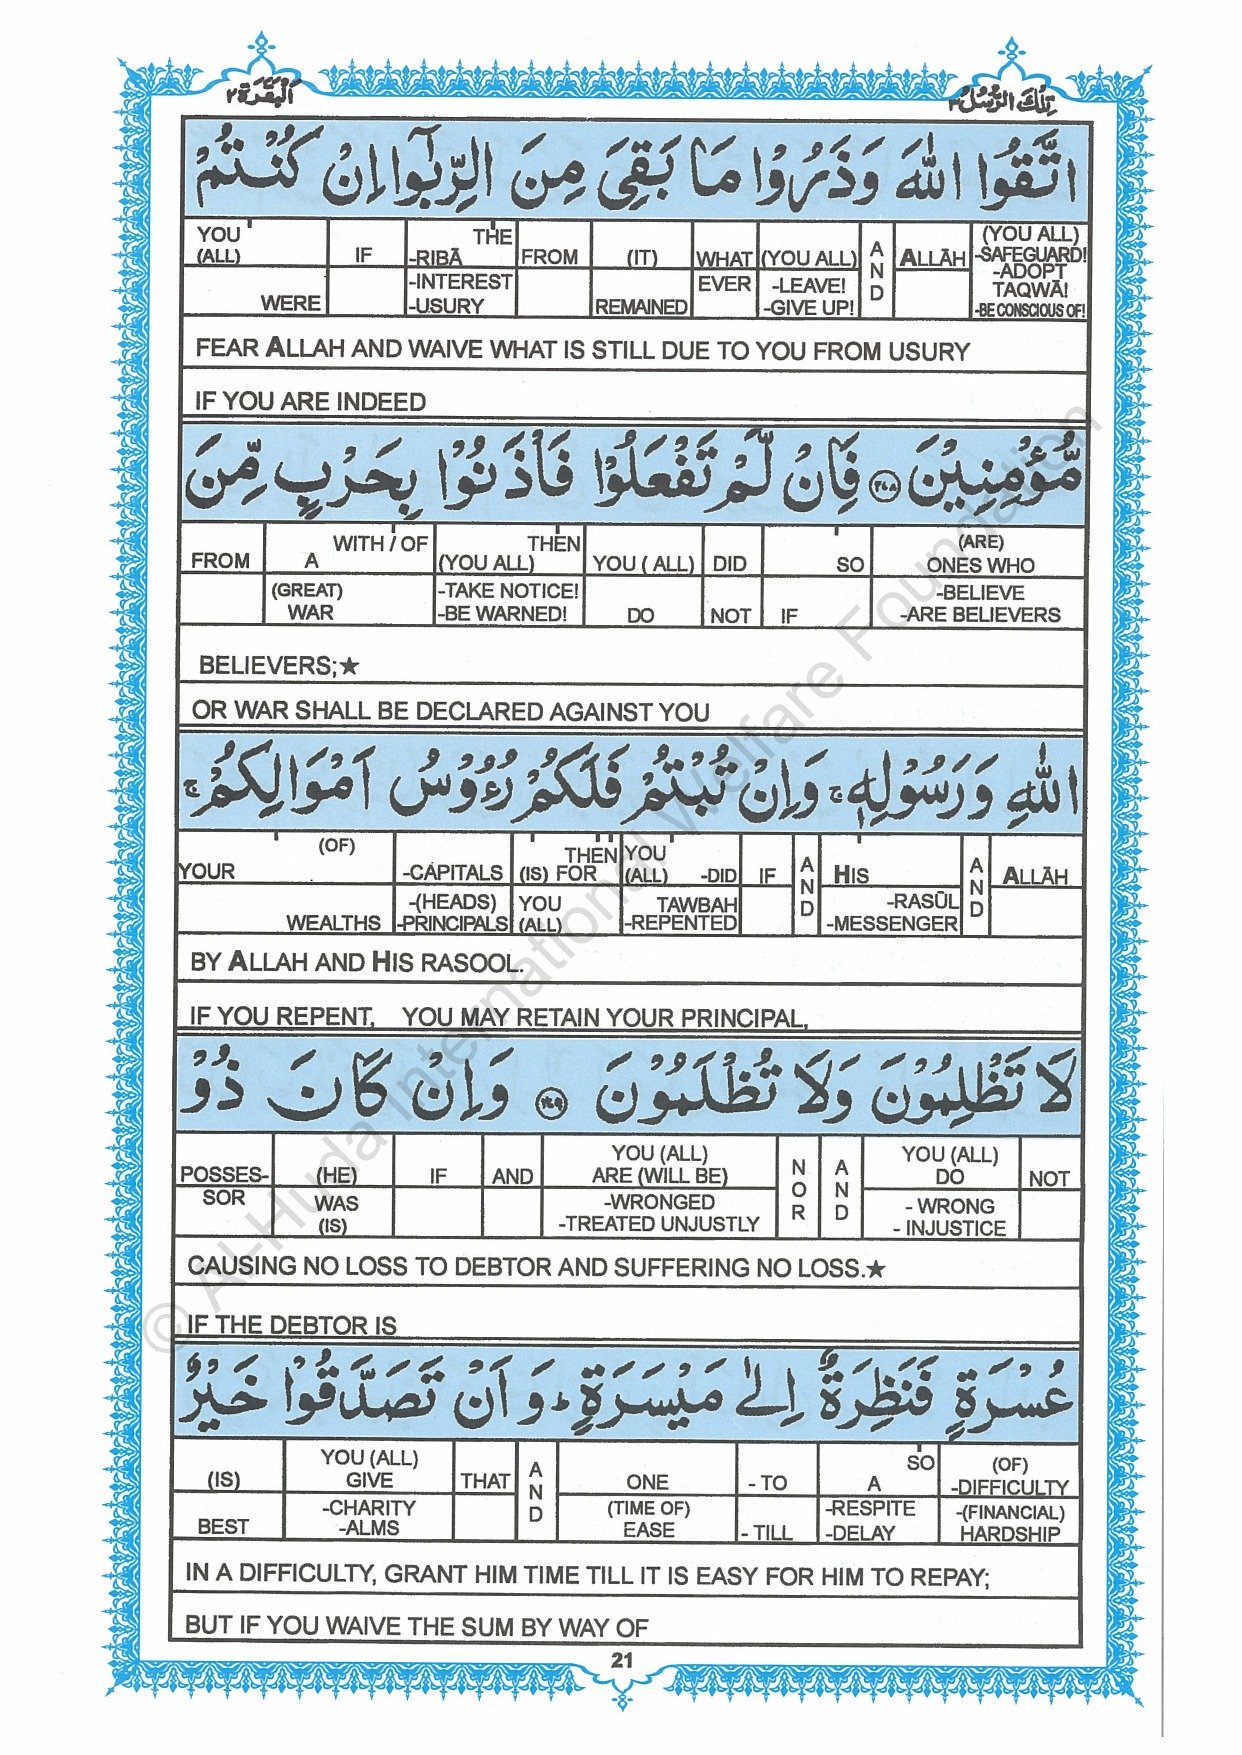 الْبَقَرَة ٢
تِلْكَ الرُّسُلُ ٣
اتَّقُوا اللّٰهَ وَذَرُوْا مَا بَقِيَ مِنَ الرِّبٰٓوا اِنْ كُنْتُمْ
YOU (ALL) WERE | IF | THE -RIBĀ -INTEREST -USURY | FROM | (IT) REMAINED | WHAT EVER | (YOU ALL) -LEAVE! -GIVE UP! | AND | ALLĀH | (YOU ALL) -SAFEGUARD! -ADOPT TAQWĀ! -BE CONSCIOUS OF!
FEAR ALLAH AND WAIVE WHAT IS STILL DUE TO YOU FROM USURY
IF YOU ARE INDEED
مُّؤْمِنِيْنَ ٢٧٨ فَاِنْ لَّمْ تَفْعَلُوْا فَاْذَنُوْا بِحَرْبٍ مِّنَ
FROM | WITH / OF A (GREAT) WAR | THEN (YOU ALL) -TAKE NOTICE! -BE WARNED! | YOU ( ALL) DO | DID NOT | SO IF | (ARE) ONES WHO -BELIEVE -ARE BELIEVERS
BELIEVERS;★
OR WAR SHALL BE DECLARED AGAINST YOU
اللّٰهِ وَرَسُوْلِهٖ ۚ وَاِنْ تُبْتُمْ فَلَكُمْ رُءُوْسُ اَمْوَالِكُمْ ۚ
YOUR (OF) WEALTHS | -CAPITALS -(HEADS) -PRINCIPALS | THEN (IS) FOR YOU (ALL) | YOU (ALL) -DID TAWBAH -REPENTED | IF | AND | HIS -RASŪL -MESSENGER | AND | ALLĀH
BY ALLAH AND HIS RASOOL.
IF YOU REPENT, YOU MAY RETAIN YOUR PRINCIPAL,
لَا تَظْلِمُوْنَ وَلَا تُظْلَمُوْنَ ٢٧٩ وَاِنْ كَانَ ذُوْ
POSSES-SOR | (HE) WAS (IS) | IF | AND | YOU (ALL) ARE (WILL BE) -WRONGED -TREATED UNJUSTLY | NOR | AND | YOU (ALL) DO - WRONG - INJUSTICE | NOT
CAUSING NO LOSS TO DEBTOR AND SUFFERING NO LOSS.★
IF THE DEBTOR IS
عُسْرَةٍ فَنَظِرَةٌ اِلٰى مَيْسَرَةٍ ؕ وَاَنْ تَصَدَّقُوْا خَيْرٌ
(IS) BEST | YOU (ALL) GIVE -CHARITY -ALMS | THAT | AND | ONE (TIME OF) EASE | - TO - TILL | SO A -RESPITE -DELAY | (OF) -DIFFICULTY -(FINANCIAL) HARDSHIP
IN A DIFFICULTY, GRANT HIM TIME TILL IT IS EASY FOR HIM TO REPAY;
BUT IF YOU WAIVE THE SUM BY WAY OF
21
© Al-Huda International Welfare Foundation